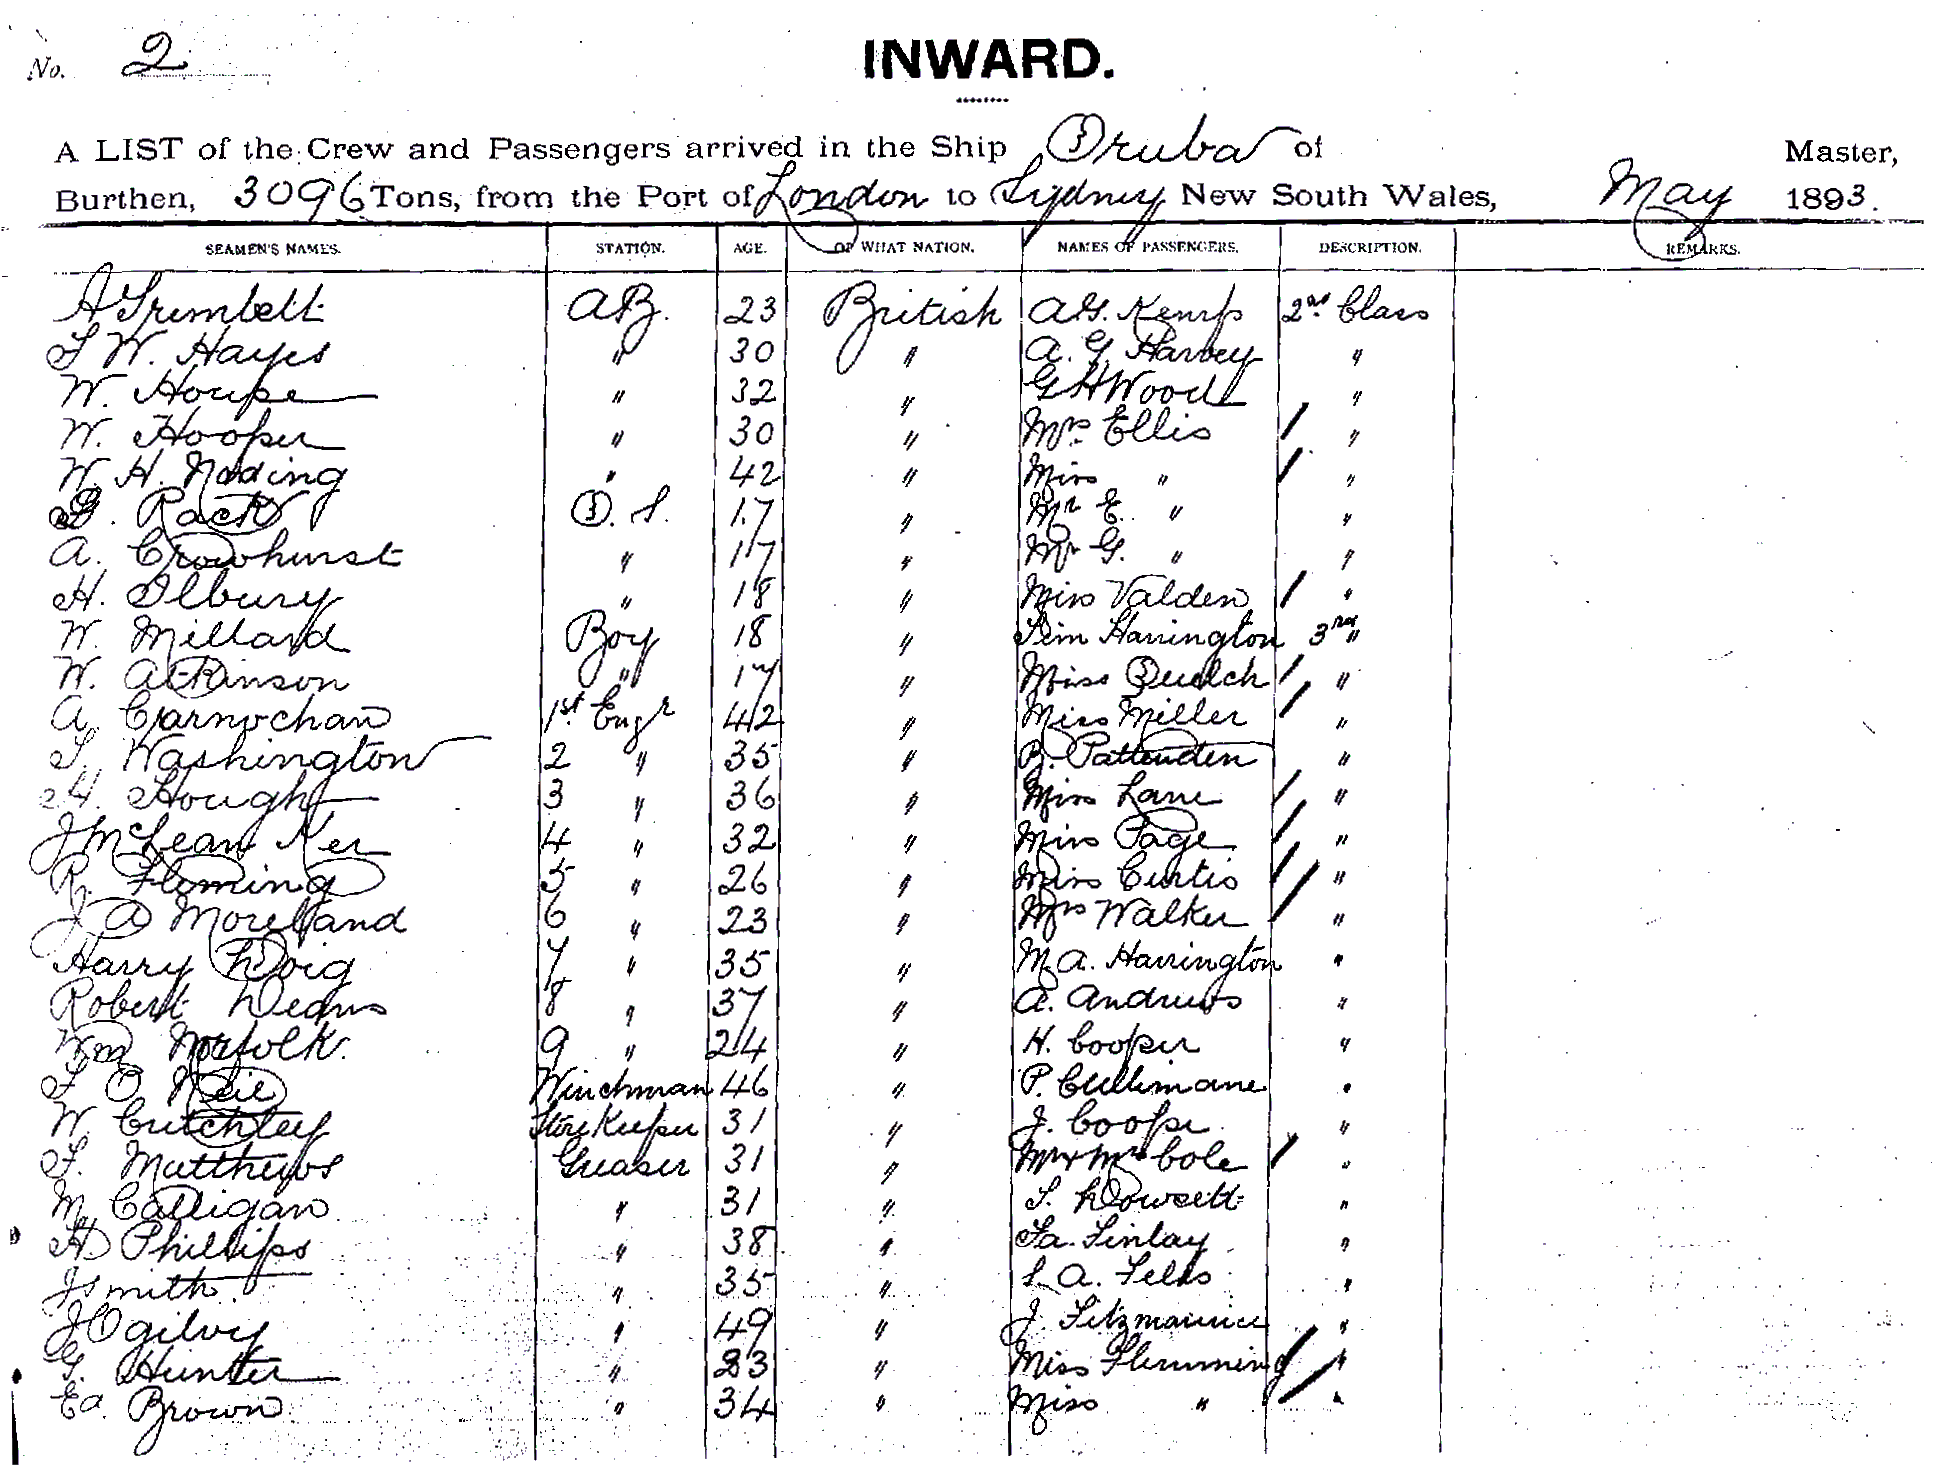 No. 2
INWARD.
A LIST of the Crew and Passengers arrived in the Ship Oruba of Master,
Burthen, 3096 Tons, from the Port of London to Sydney New South Wales, May 1893.
SEAMEN'S NAMES. STATION. AGE. OF WHAT NATION. NAMES OF PASSENGERS. DESCRIPTION. REMARKS.
A Trimbell A.B. 23 British A.G. Kemp 2nd Class
F W. Hayes " 30 " A. G. Harvey "
W. House " 32 " G H Wood "
W. Hooper " 30 " Mrs Ellis / "
W. H. Noding " 42 " Miss " / "
G. Rack O. S. 17 " Mr E. " "
A. Crowhurst " 17 " Mr G. " "
H. Ilbury " 18 " Miss Valden / "
W. Millard Boy 18 " Harrington 3rd "
W. Atkinson " 17 " Miss Quelch / "
A. Carnochan 1st Engr 42 " Miss Miller / "
T. Washington 2 " 35 " B. Pattenden "
H. Hough 3 " 36 " Miss Lane / "
J McLean Ker 4 " 32 " Miss Page / "
R. Fleming 5 " 26 " Miss Curtis / "
J A Moreland 6 " 23 " Mrs Walker / "
Harry Doig 7 " 35 " M. A. Harrington "
Robert Deans 8 " 37 " A. Andrews "
Wm Norfolk. 9 " 24 " H. Cooper "
F O Neil Winchman 46 " P. Cullimane "
W. Critchley Store Keeper 31 " J. Cooper "
F. Matthews Greaser 31 " Mr & Mrs Cole / "
M. Calligan " 31 " S. Dowsett "
H Phillips " 38 " Finlay "
J Smith " 35 " A. Fells "
J Ogilvy " 49 " J. Fitzmaurice "
G. Hunter " 23 " Miss Flemming / "
Ed. Brown " 34 " Miss " / "